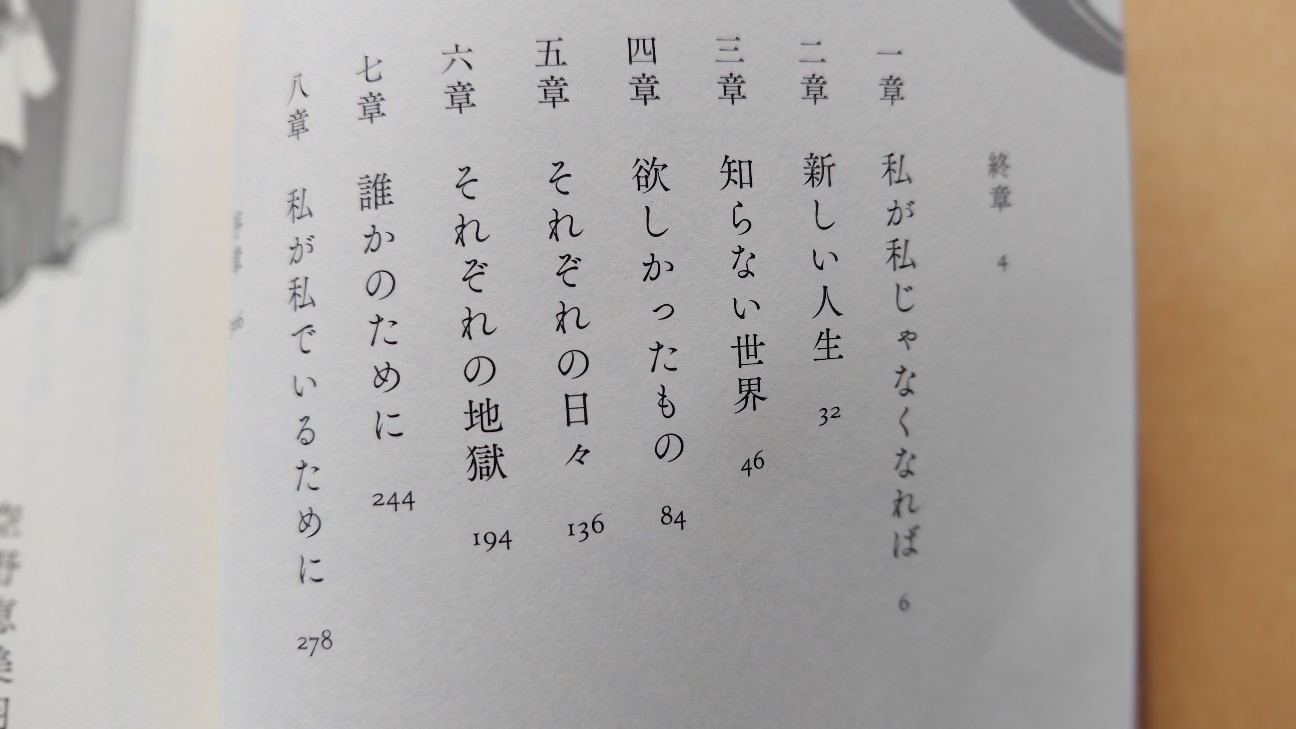 終章 4
一章 私が私じゃなくなれば 6
二章 新しい人生 32
三章 知らない世界 46
四章 欲しかったもの 84
五章 それぞれの日々 136
六章 それぞれの地獄 194
七章 誰かのために 244
八章 私が私でいるために 278